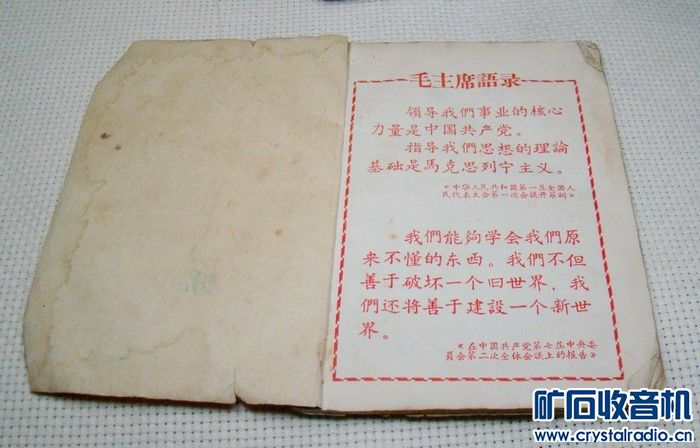 毛主席語录
領导我們事业的核心
力量是中国共产党。
指导我們思想的理論
基础是馬克思列宁主义。
《中华人民共和国第一届全国人
民代表大会第一次会议开幕詞》
我們能夠学会我們原
来不懂的东西。我們不但
善于破坏一个旧世界，我
們还将善于建設一个新世
界。
《在中国共产党第七届中央委
員会第二次全体会議上的报告》
矿石收音机
www.crystalradio.cn